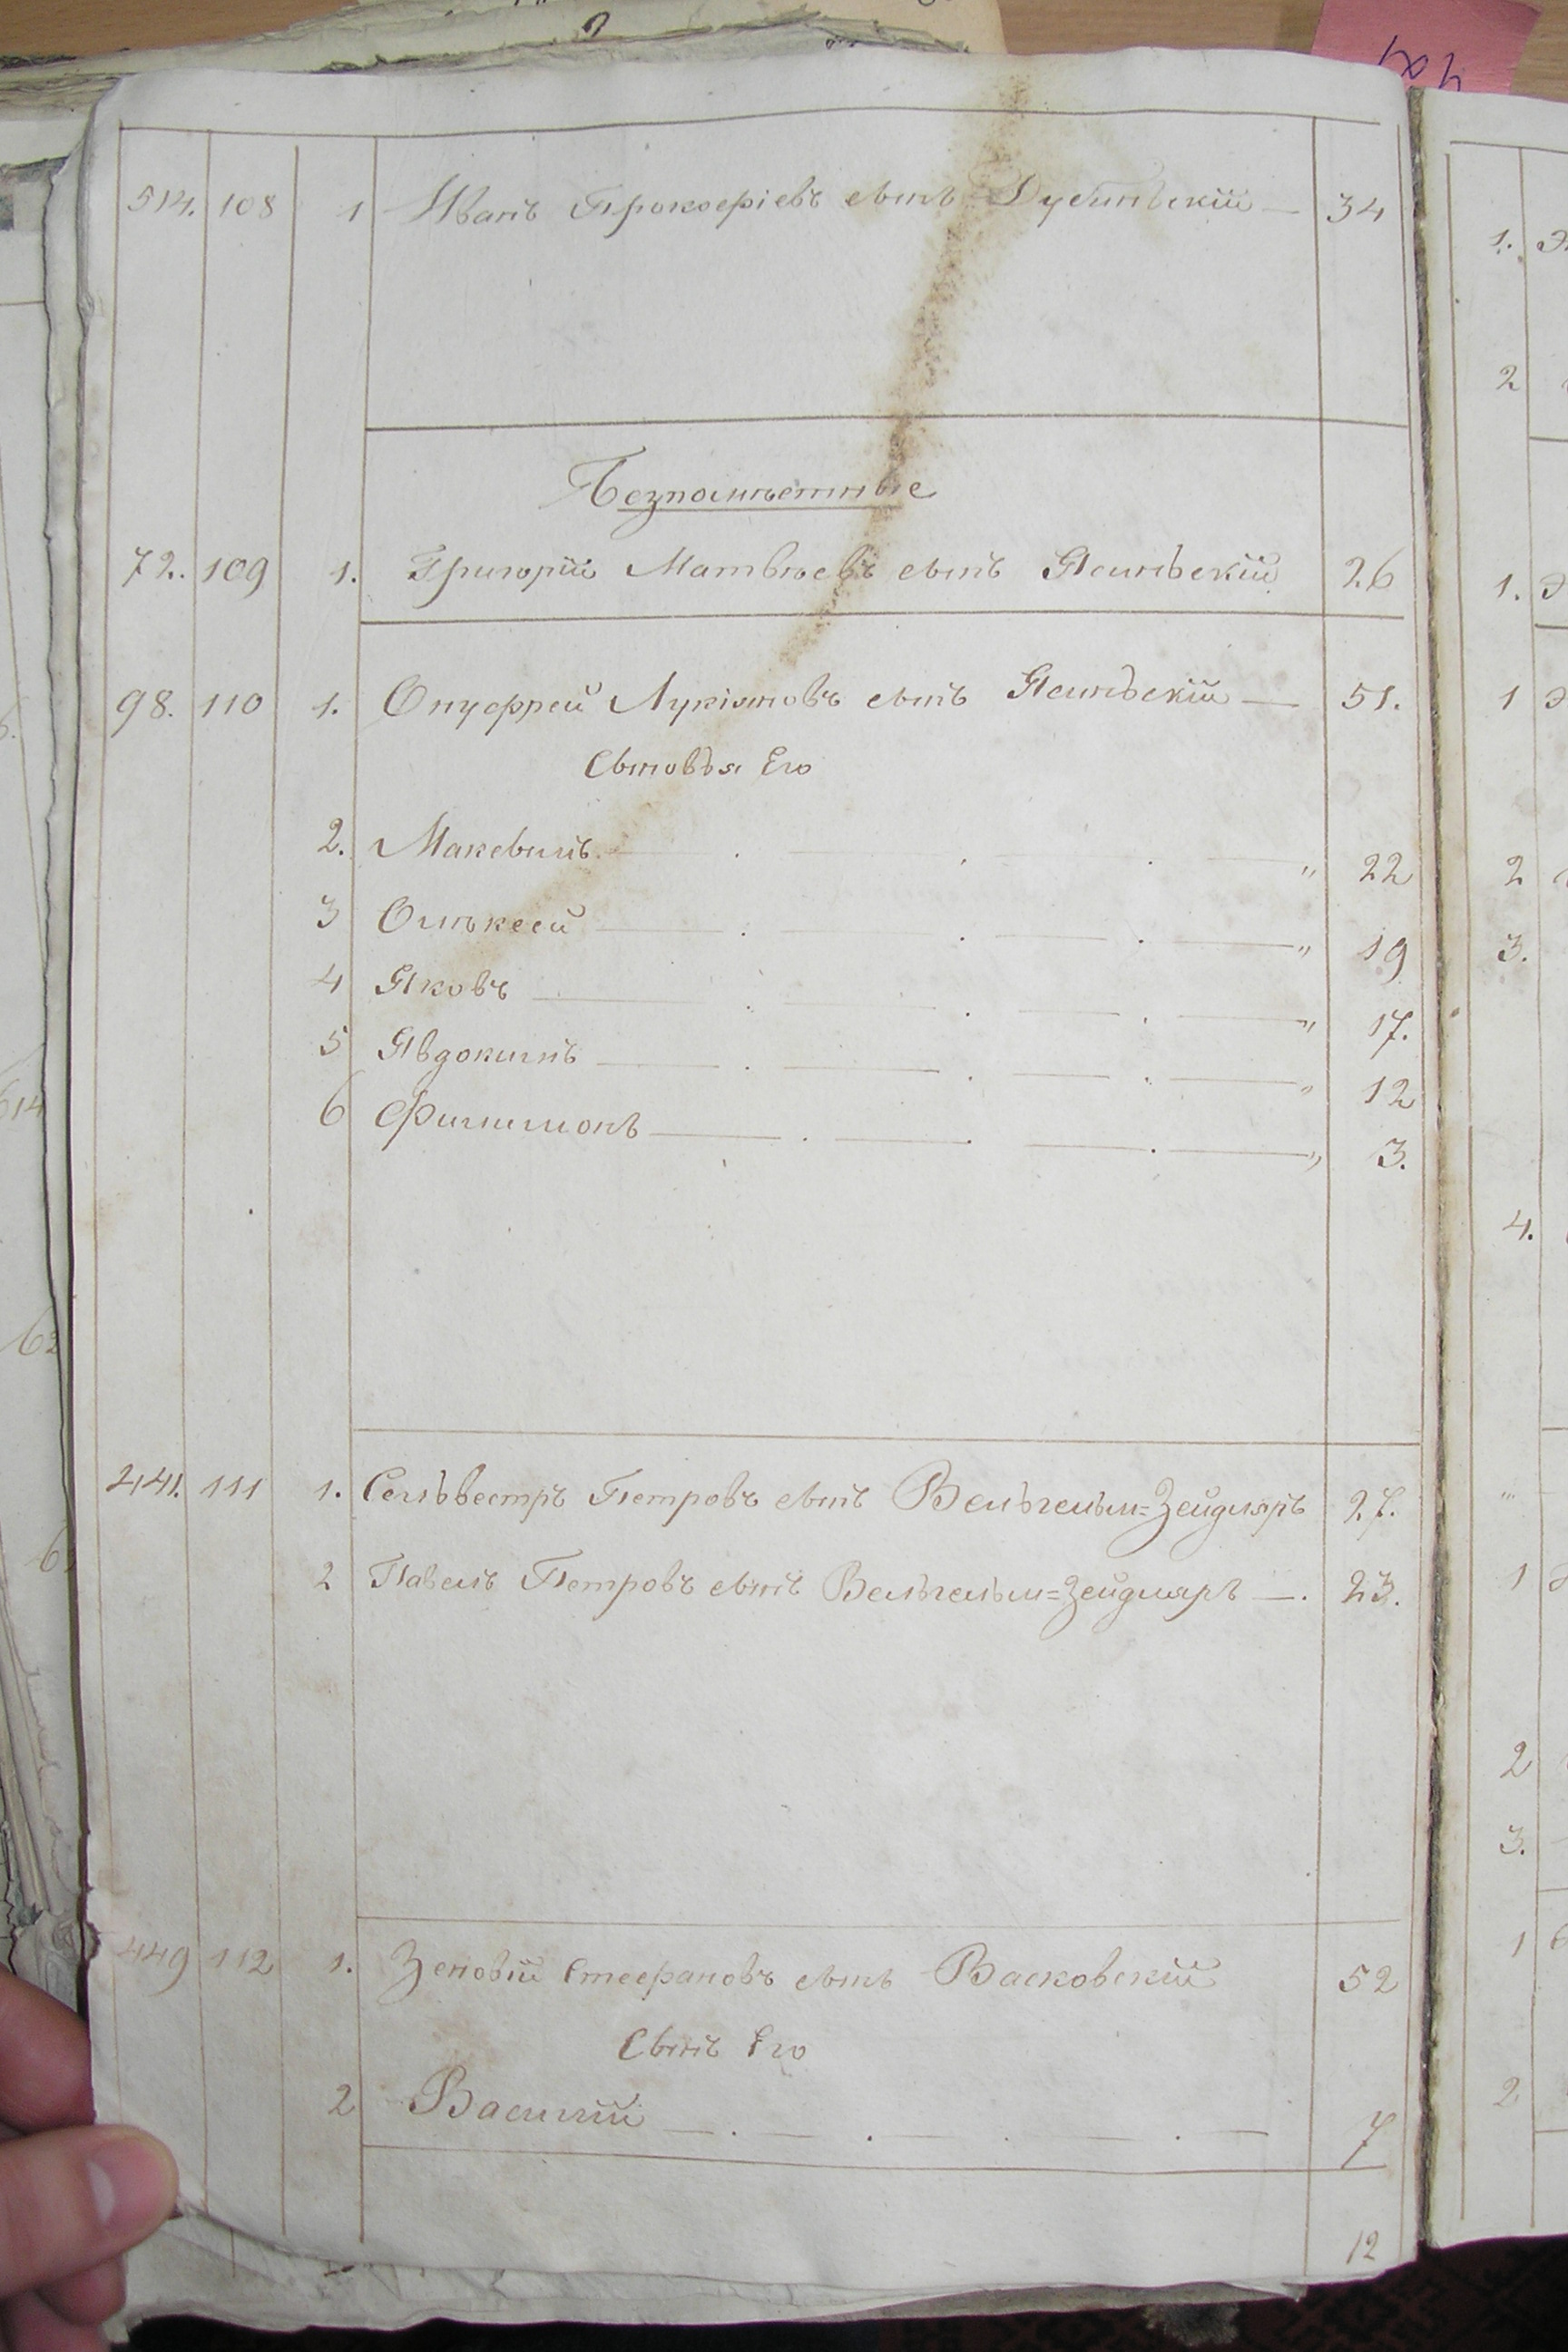 514. 108 1 Иванъ Прокофіевъ сынъ Дубинскій — 34
Безпомѣстные
72. 109 1. Григорій Матвѣевъ сынъ Ясинскій 26
98. 110 1. Онуфрей Лукіяновъ сынъ Ясинскій — 51.
Сыновья Его
2. Максымъ 22
3 Олѣксей 19
4 Яковъ 17.
5 Явдокимъ 12
6 Филимонъ 3.
441. 111 1. Сельвестръ Петровъ сынъ Вельгельм=Зейдляръ 27.
2 Павелъ Петровъ сынъ Вельгельм=Зейдляръ — 23.
449 112 1. Зеновій Стефановъ сынъ Васковскій 52
Сынъ Его
2 Василій 7
12